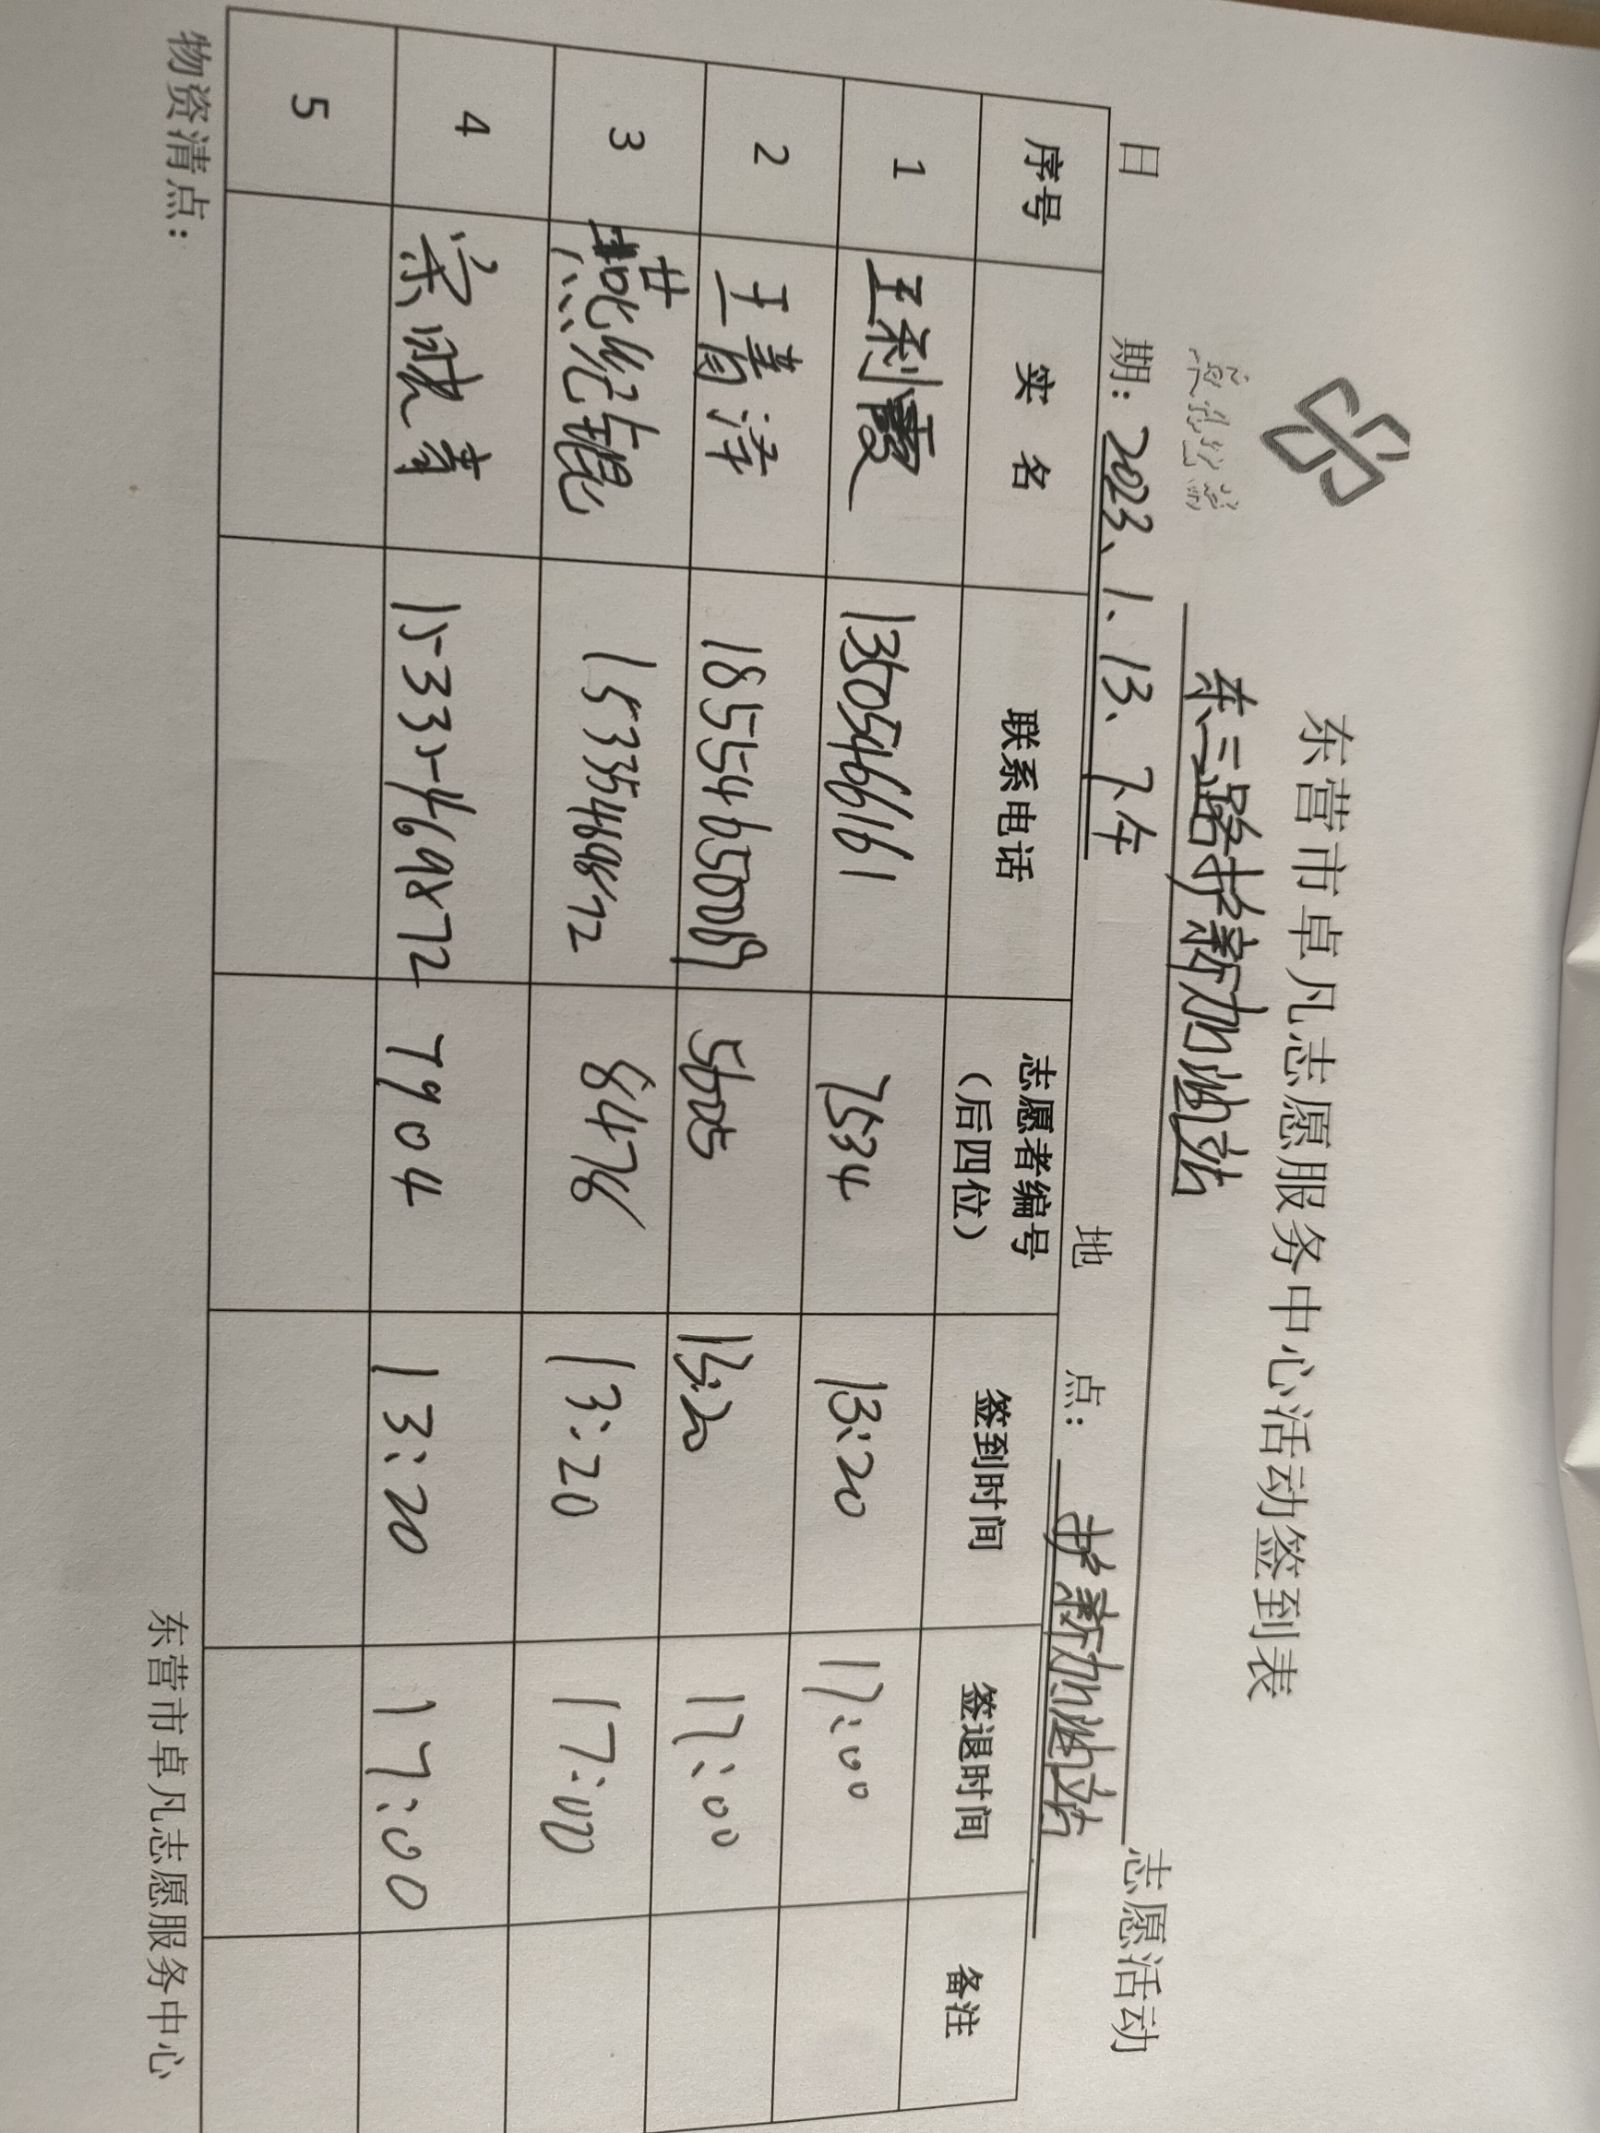 东营市卓凡志愿服务中心活动签到表
东三路护新加油站 志愿活动
日 期: 2023、1、13、下午 地 点: 护新加油站
序号 实 名 联系电话 志愿者编号（后四位） 签到时间 签退时间 备注
1 王利霞 13505466161 7534 13:20 17:00
2 王青泽 18555465008 13:20 17:00
3 燕纪琨 15335469872 8476 13:20 17:00
4 宗晓青 15335469872 7904 13:20 17:00
5
物资清点:
东营市卓凡志愿服务中心